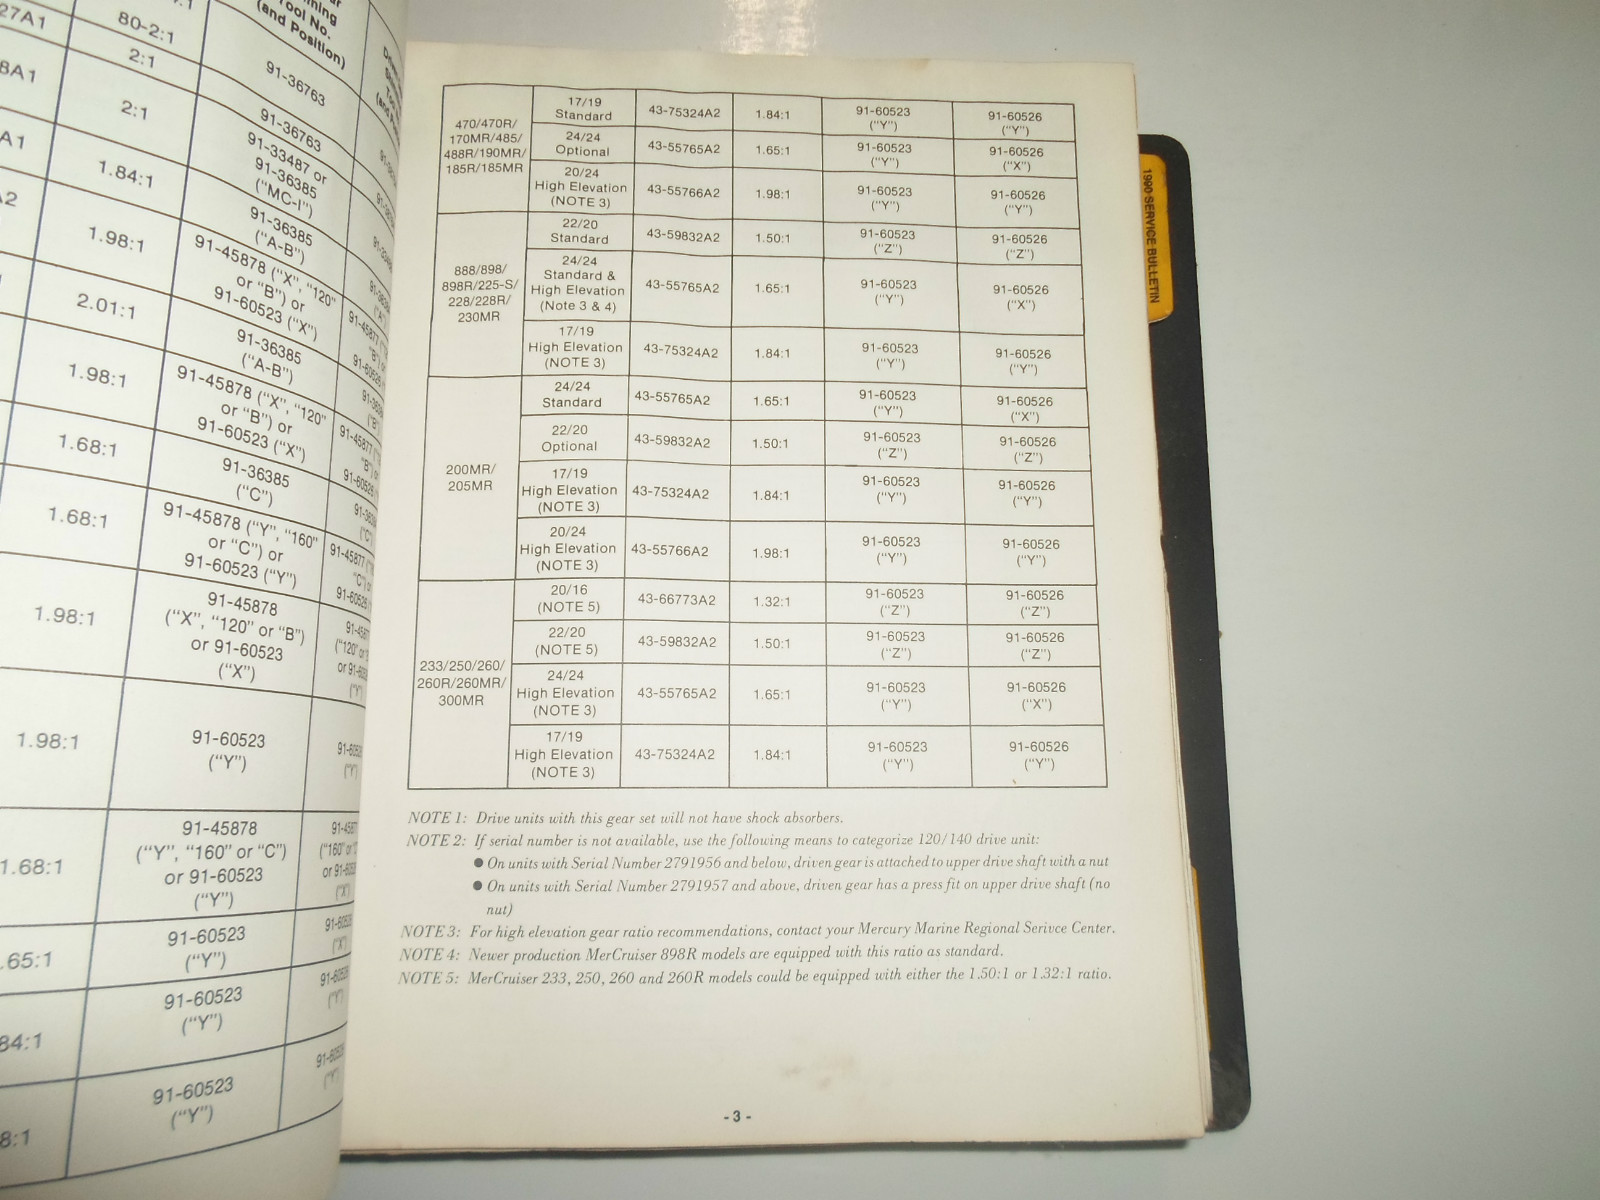 27A1
80-2:1
Tool No.
(and Position)
8A1
2:1
91-36763
2:1
91-36763
A1
1.84:1
91-33487 or
91-36385
("MC-I")
A2
1.98:1
91-36385
("A-B")
2.01:1
91-45878 ("X", "120"
or "B") or
91-60523 ("X")
1.98:1
91-36385
("A-B")
1.68:1
91-45878 ("X", "120"
or "B") or
91-60523 ("X")
1.68:1
91-36385
("C")
91-45878 ("Y", "160"
or "C") or
91-60523 ("Y")
1.98:1
91-45878
("X", "120" or "B")
or 91-60523
("X")
1.98:1
91-60523
("Y")
1.68:1
91-45878
("Y", "160" or "C")
or 91-60523
("Y")
.65:1
91-60523
("Y")
84:1
91-60523
("Y")
8:1
91-60523
("Y")
470/470R/
170MR/485/
488R/190MR/
185R/185MR
17/19
Standard
43-75324A2
1.84:1
91-60523
("Y")
91-60526
("Y")
24/24
Optional
43-55765A2
1.65:1
91-60523
("Y")
91-60526
("X")
20/24
High Elevation
(NOTE 3)
43-55766A2
1.98:1
91-60523
("Y")
91-60526
("Y")
888/898/
898R/225-S/
228/228R/
230MR
22/20
Standard
43-59832A2
1.50:1
91-60523
("Z")
91-60526
("Z")
24/24
Standard &
High Elevation
(Note 3 & 4)
43-55765A2
1.65:1
91-60523
("Y")
91-60526
("X")
17/19
High Elevation
(NOTE 3)
43-75324A2
1.84:1
91-60523
("Y")
91-60526
("Y")
200MR/
205MR
24/24
Standard
43-55765A2
1.65:1
91-60523
("Y")
91-60526
("X")
22/20
Optional
43-59832A2
1.50:1
91-60523
("Z")
91-60526
("Z")
17/19
High Elevation
(NOTE 3)
43-75324A2
1.84:1
91-60523
("Y")
91-60526
("Y")
20/24
High Elevation
(NOTE 3)
43-55766A2
1.98:1
91-60523
("Y")
91-60526
("Y")
233/250/260/
260R/260MR/
300MR
20/16
(NOTE 5)
43-66773A2
1.32:1
91-60523
("Z")
91-60526
("Z")
22/20
(NOTE 5)
43-59832A2
1.50:1
91-60523
("Z")
91-60526
("Z")
24/24
High Elevation
(NOTE 3)
43-55765A2
1.65:1
91-60523
("Y")
91-60526
("X")
17/19
High Elevation
(NOTE 3)
43-75324A2
1.84:1
91-60523
("Y")
91-60526
("Y")
NOTE 1: Drive units with this gear set will not have shock absorbers.
NOTE 2: If serial number is not available, use the following means to categorize 120/140 drive unit:
● On units with Serial Number 2791956 and below, driven gear is attached to upper drive shaft with a nut
● On units with Serial Number 2791957 and above, driven gear has a press fit on upper drive shaft (no
nut)
NOTE 3: For high elevation gear ratio recommendations, contact your Mercury Marine Regional Serivce Center.
NOTE 4: Newer production MerCruiser 898R models are equipped with this ratio as standard.
NOTE 5: MerCruiser 233, 250, 260 and 260R models could be equipped with either the 1.50:1 or 1.32:1 ratio.
- 3 -
1990 SERVICE BULLETIN